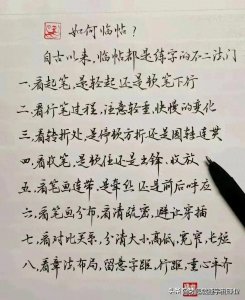 如何临帖？
自古以来，临帖都是练字的不二法门
一、看起笔，是轻起还是顿笔下行
二、看行笔过程，注意轻重，快慢的变化
三、看转折处，是停顿方折还是圆转连贯
四、看收笔，是顿住还是出锋，收放
五、看笔画连带，是牵丝还是前后呼应
六、看笔画分布，看清疏密，避让穿插
七、看对比关系，分清大小高低，宽窄，长短
八、看章法布局，留意字距，行距，重心平齐